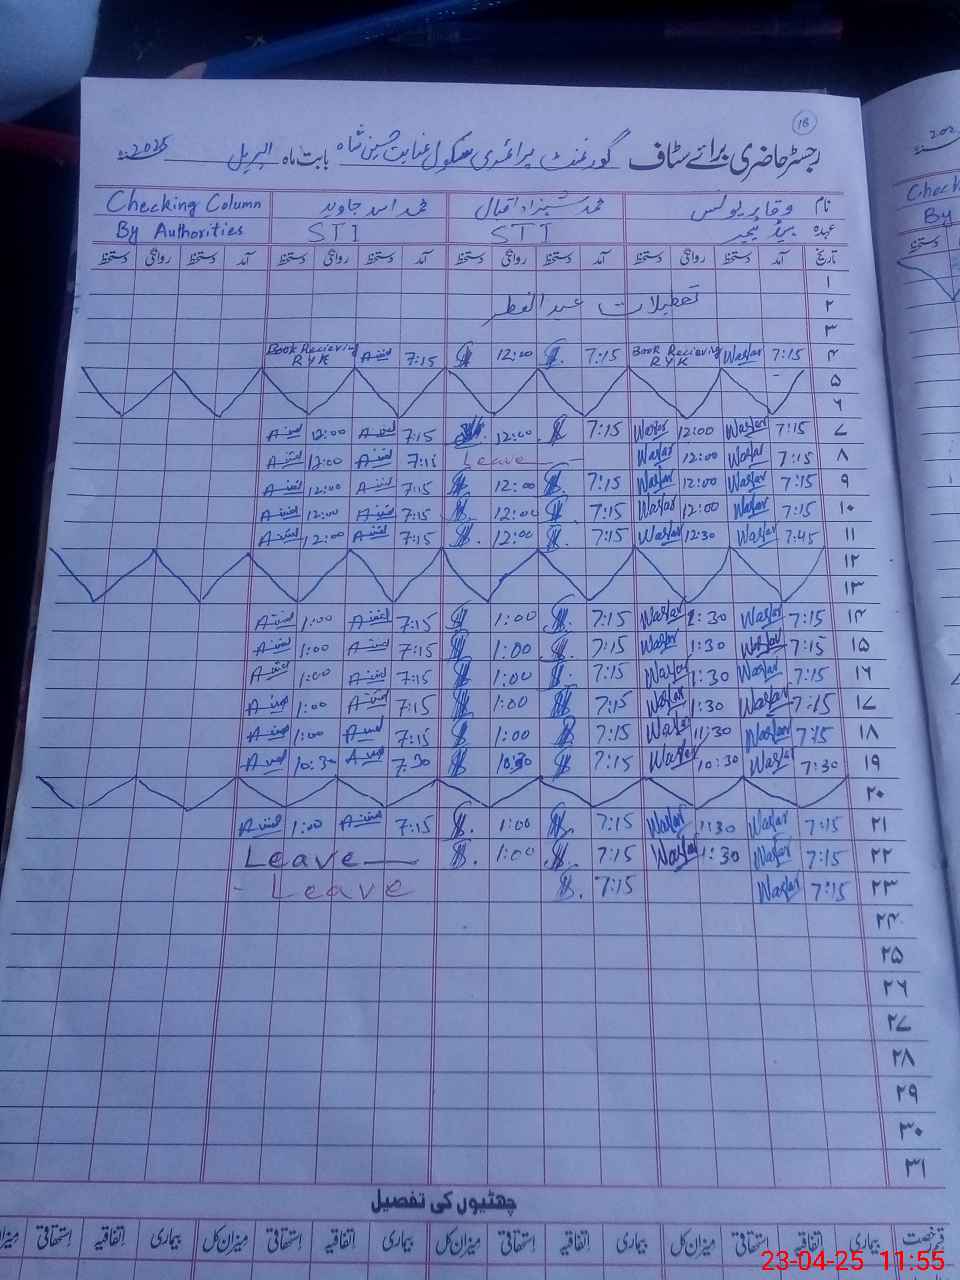 18
رجسٹر حاضری برائے سٹاف گورنمنٹ پرائمری سکول عنایت حسین شاہ بابت ماہ اپریل 2025
نام وقار یونس محمد شہزاد اقبال محمد اسد جاوید Checking Column
عہدہ ہیڈ ٹیچر STI STI By Authorities
تاریخ آمد دستخط روانگی دستخط آمد دستخط روانگی دستخط آمد دستخط روانگی دستخط آمد دستخط روانگی دستخط
۱
۲ تعطیلات عید الفطر
۳
۴ 7:15 Waqar Book Recieving RYK 7:15 12:00 7:15 Book Recieving RYK
۵
۶
۷ 7:15 Waqar 12:00 Waqar 7:15 12:00 7:15 12:00
۸ 7:15 Waqar 12:00 Waqar Leave 7:15 12:00
۹ 7:15 Waqar 12:00 Waqar 7:15 12:00 7:15 12:00
۱۰ 7:15 Waqar 12:00 Waqar 7:15 12:00 7:15 12:00
۱۱ 7:45 Waqar 12:30 Waqar 7:15 12:00 7:15 12:00
۱۲
۱۳
۱۴ 7:15 Waqar 1:30 Waqar 7:15 1:00 7:15 1:00
۱۵ 7:15 Waqar 1:30 Waqar 7:15 1:00 7:15 1:00
۱۶ 7:15 Waqar 1:30 Waqar 7:15 1:00 7:15 1:00
۱۷ 7:15 Waqar 1:30 Waqar 7:15 1:00 7:15 1:00
۱۸ 7:15 Waqar 11:30 Waqar 7:15 1:00 7:15 1:00
۱۹ 7:30 Waqar 10:30 Waqar 7:15 10:30 7:30 10:30
۲۰
۲۱ 7:15 Waqar 1:30 Waqar 7:15 1:00 7:15 1:00
۲۲ 7:15 Waqar 1:30 Waqar 7:15 1:00 Leave
۲۳ 7:15 Waqar 7:15 Leave
۲۴
۲۵
۲۶
۲۷
۲۸
۲۹
۳۰
۳۱
چھٹیوں کی تفصیل
قسم رخصت بیماری اتفاقیہ استحقاقی میزان کل بیماری اتفاقیہ استحقاقی میزان کل بیماری اتفاقیہ استحقاقی میزان کل بیماری اتفاقیہ استحقاقی میزان
23-04-25 11:55